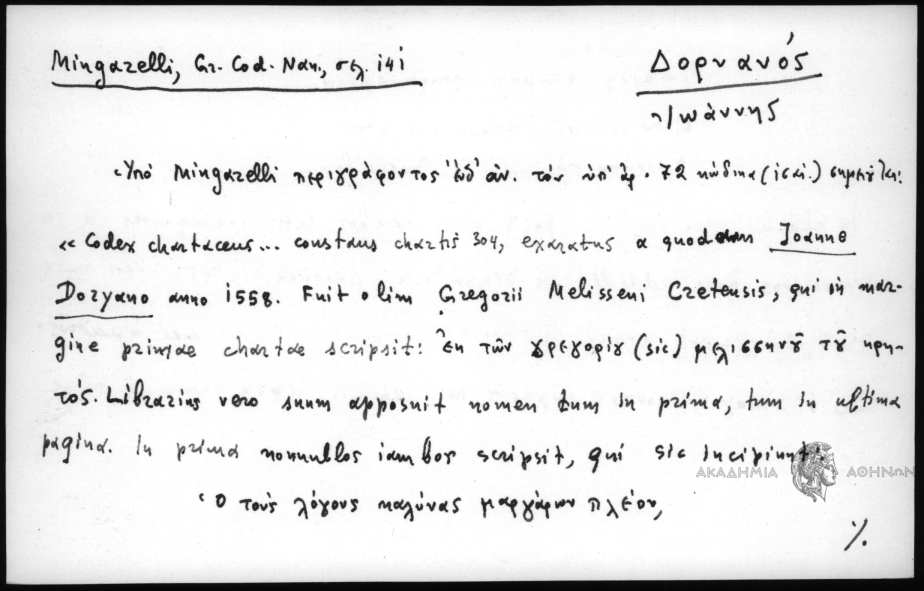 Mingarelli, Gr. Cod. Nan., σελ. 141
Δορυανός
Ἰωάννης
Ὑπό Mingarelli περιγράφοντος ἐνθ' ἀν. τόν ὑπ' ἀρ. 72 κώδικα (ις' αἰ.) σημειοῦται:
« Codex chartaceus... constans chartis 304, exaratus a quodam Joanne
Doryano anno 1558. Fuit olim Gregorii Melisseni Cretensis, qui in mar-
gine primae chartae scripsit: Ἐκ τῶν γρεγορίου (sic) μελισσηνοῦ τοῦ κρη-
τός. Librarius vero suum apposuit nomen tum in prima, tum in ultima
pagina. In prima nonnullos iambos scripsit, qui sic incipiunt:
ΑΚΑΔΗΜΙΑ ΑΘΗΝΩΝ
Ὁ τούς λόγους καλύνας μαργάρων πλέον,
%.